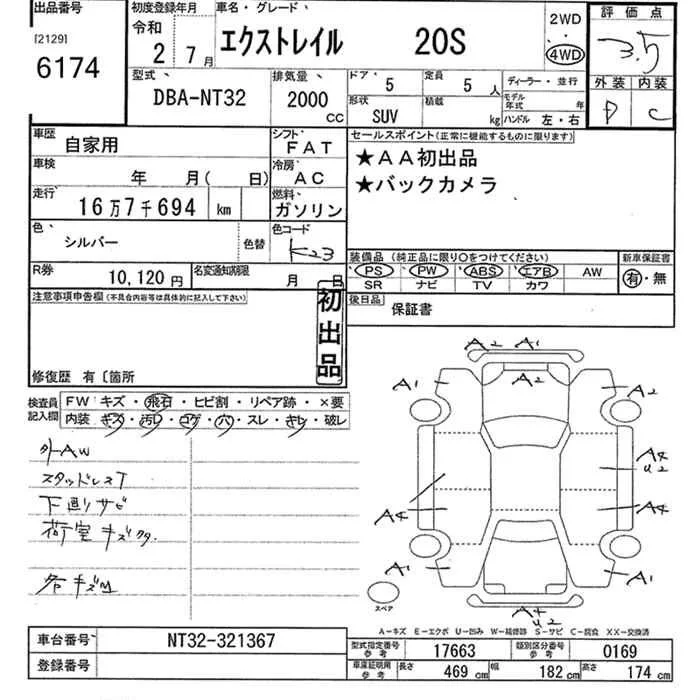 出品番号 初度登録年月 車名・グレード
[2129] 6174
令和 2年 7月
エクストレイル 20S
2WD 4WD
評価点 3.5
外装 内装
D C
型式 DBA-NT32
排気量 2000 CC
ドア 5
定員 5人
形状 SUV
積載 kg
ディーラー・並行
モデル年式 年
ハンドル 左・右
車歴 自家用
シフト FAT
車検 年 月( 日)
冷房 AC
走行 16万7千694 km
燃料 ガソリン
色 シルバー 色替
色コード K23
R券 10,120円
名変通知期限 月 日
セールスポイント(正常に機能するものに限ります)
★AA初出品
★バックカメラ
装備品 (純正品に限り〇をつけてください)
PS PW ABS エアB AW
SR ナビ TV カワ
新車保証書
有・無
後日品 保証書
注意事項申告欄(不具合内容等は具体的に記入して下さい)
初出品
修復歴 有〔箇所
検査員記入欄
FW キズ・飛石・ヒビ割・リペア跡・×要
内装・キズ・汚レ・コゲ・穴・スレ・キレ・破レ
外AW
スタッドレスT
下廻りサビ
荷室キズ
キズ
A2 A1
A1 A2 A2
A4
U2
A4 A4
A1 A1
A4
U2
スペア
A-キズ E-エクボ U-凹み W-補修跡 S-サビ C-腐食 XX-交換済
車台番号 NT32-321367
登録番号
型式指定番号 参考 17663
類別区分番号 参考 0169
車庫証明用 参考
長さ 469 cm
幅 182 cm
高さ 174 cm